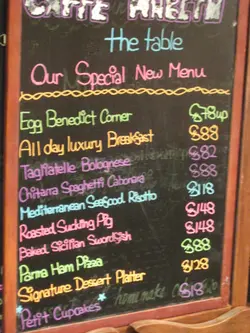 CAFFE HABITU
the table
Our Special New Menu
Egg Benedict Corner $78up
All day luxury Breakfast $88
Tagliatelle Bolognese $82
Chitarra Spaghetti Cabonara $88
Mediterranean Seafood Risotto $118
Roasted Suckling Pig $148
Baked Sicilian Swordfish $148
Parma Ham Pizza $88
Signature Dessert Platter $128
Petit Cupcakes $18